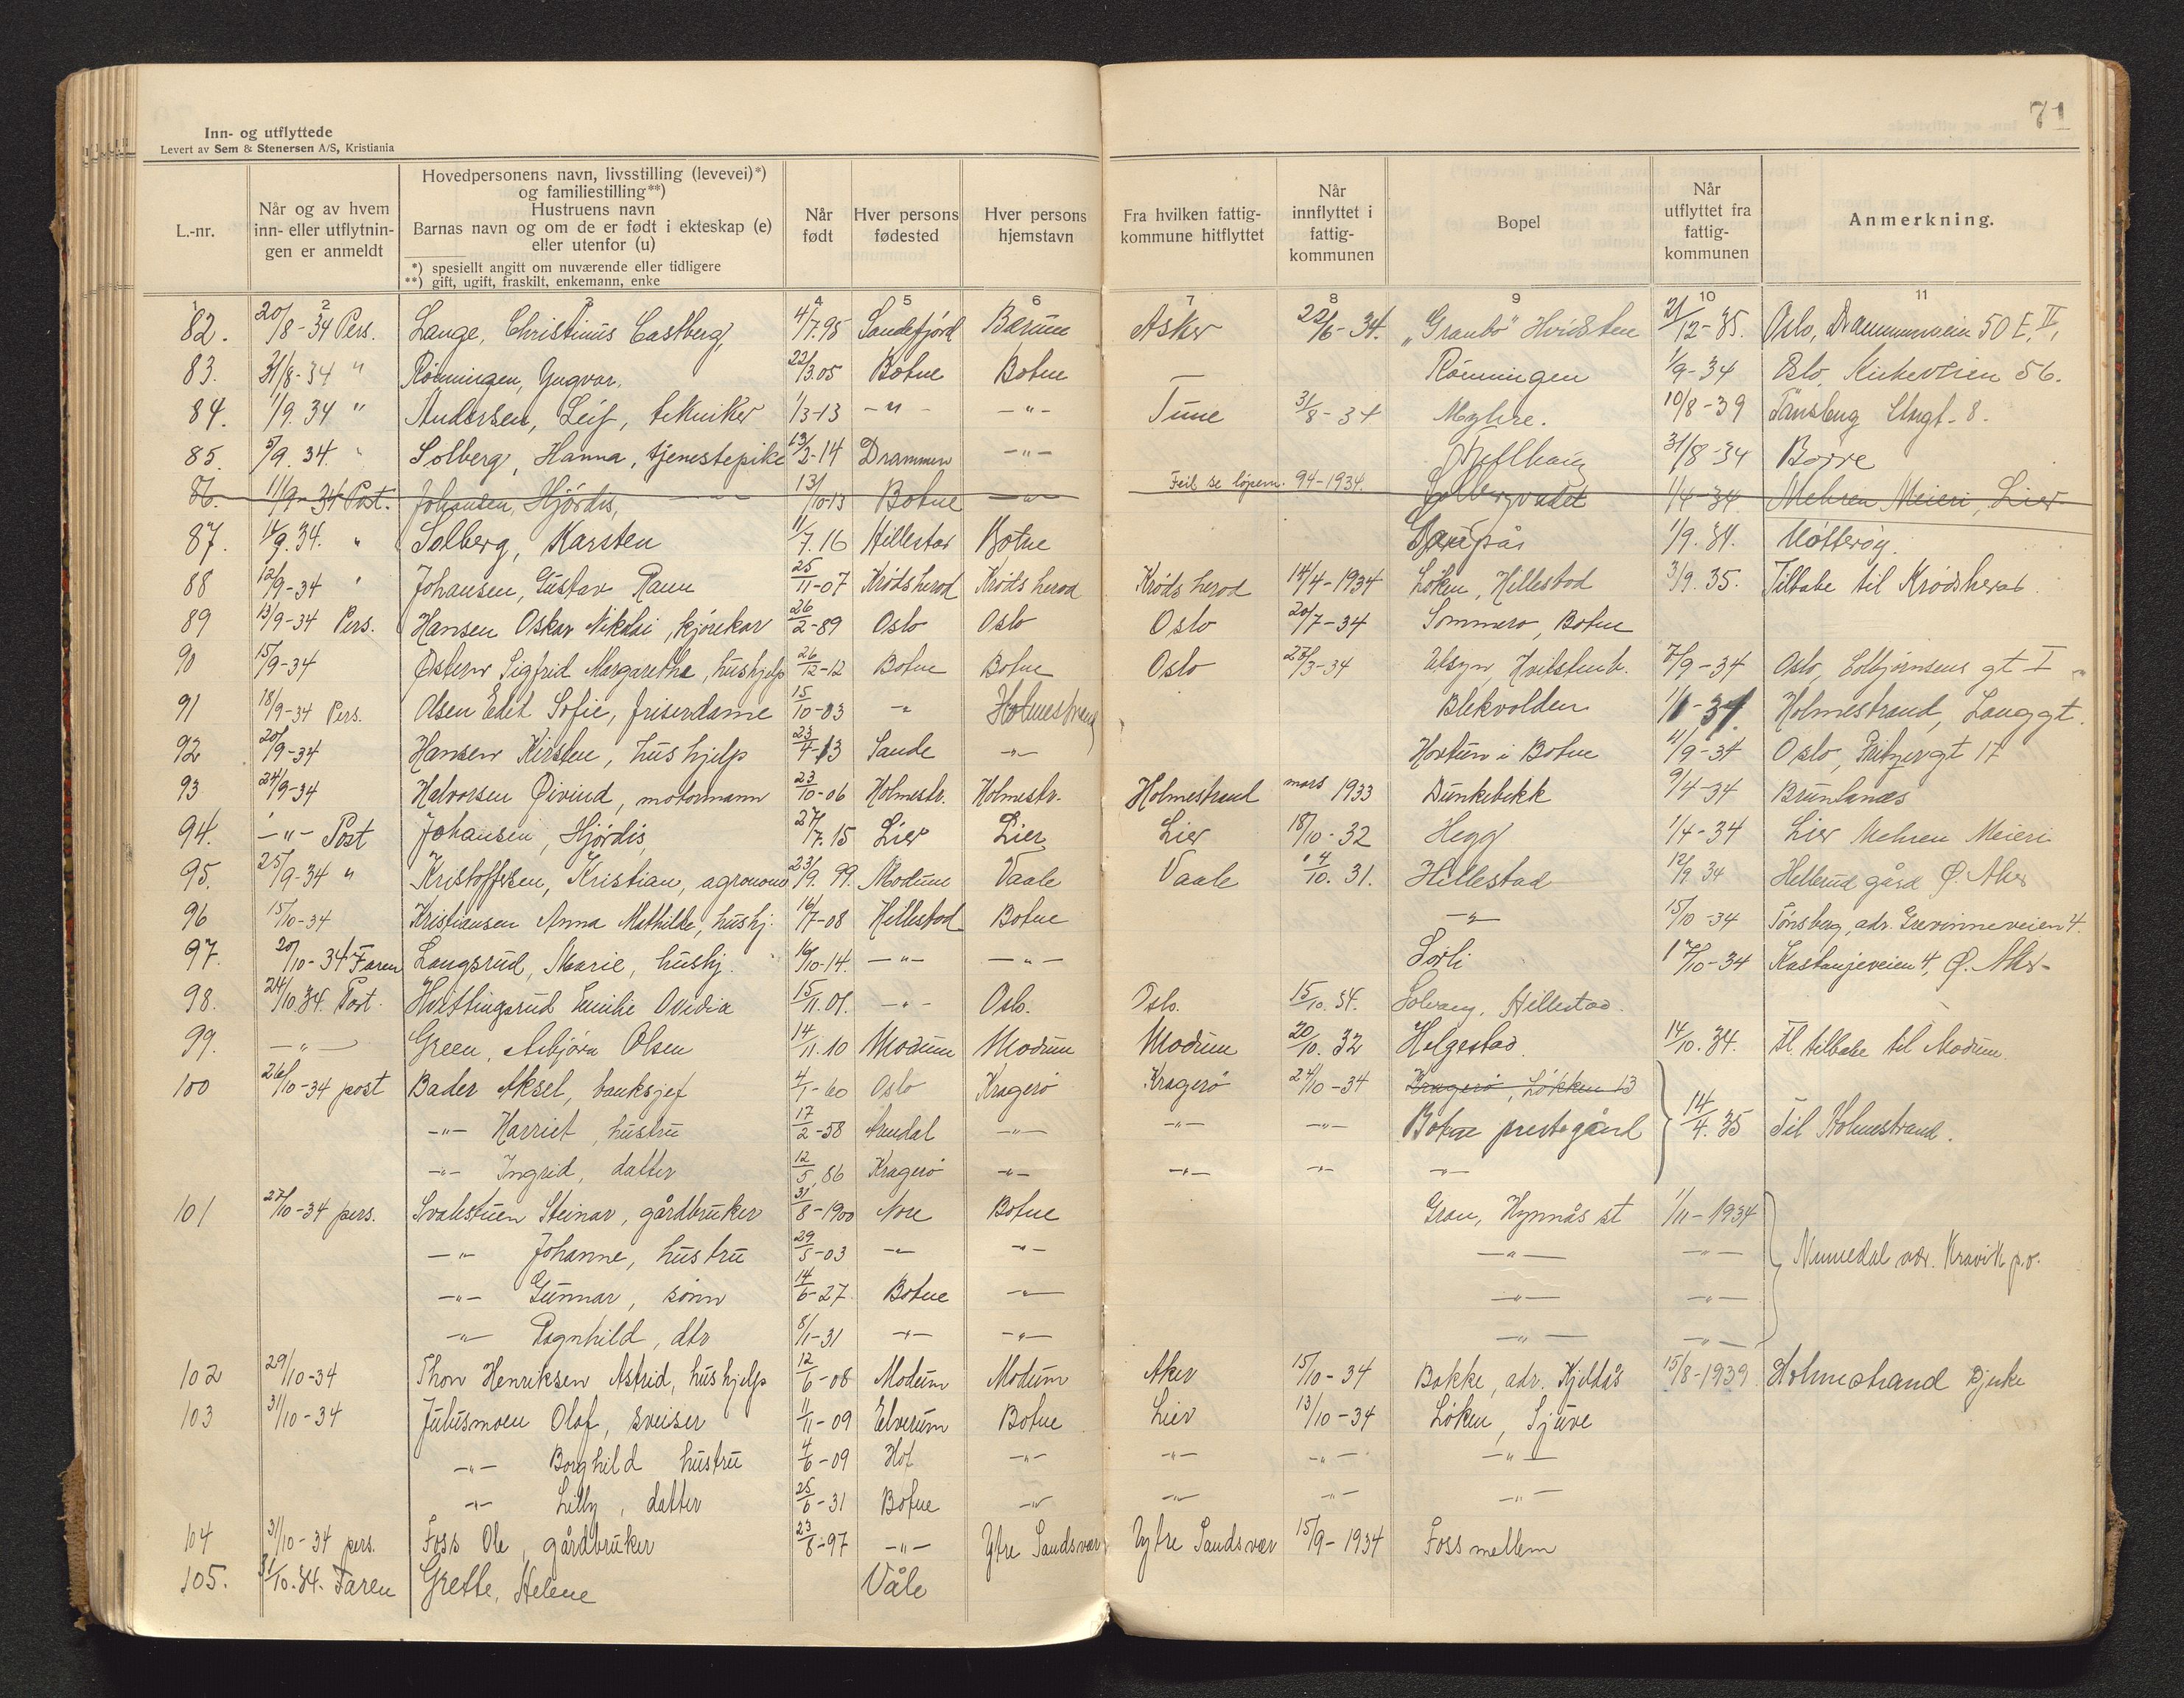 71
Inn- og utflyttede
Levert av Sem & Stenersen A/S, Kristiania
L.-nr.
Når og av hvem inn- eller utflytnin-gen er anmeldt
Hovedpersonens navn, livsstilling (levevei)*) og familiestilling**)
Hustruens navn
Barnas navn og om de er født i ekteskap (e) eller utenfor (u)
*) spesiellt angitt om nuværende eller tidligere
**) gift, ugift, fraskilt, enkemann, enke
Når født
Hver persons fødested
Hver persons hjemstavn
Fra hvilken fattig-kommune hitflyttet
Når innflyttet i fattig-kommunen
Bopel
Når utflyttet fra fattig-kommunen
Anmerkning.
1 2 3 4 5 6 7 8 9 10 11
82. 20/8-34 Pers. Lange, Christinus Castberg, 4/7.95 Sandefjord Bærum Asker 22/6-34. „Granbo" Hvidsten 21/12-35. Oslo, Drammensveien 50 E. II,
83. 31/8-34 " Rönningen, Yngvar. 22/3.05 Botne Botne — Rönningen 1/9-34 Oslo, Kirkeveien 56.
84. 1/9.34 " Andersen, Leif, tekniker 1/3-13 -"- -"- Tune 31/8-34 Myhre. 10/8-39 Tønsberg Stngt. 8.
85. 5/9.34. " Solberg, Hanna, tjenestepike 13/2-14 Drammen -"- 31/8-34 Borre
86. 11/9-34 Post. Johansen, Hjördis, 13/10-13 Botne -"- Feil se löpenr. 94-1934. 1/4-34 Mehren Meieri, Lier
87. 14/9.34. " Solberg, Karsten 11/7.16 Hillestad Botne 1/9.34. Nötterøy.
88 12/9-34 " Johansen, Gustav 25/11-07 Krödsherad Krödsherad Krödsherad 14/4-1934 Löken, Hillestad 3/9.35. Tilbake til Krödsherad.
89 13/9-34 Pers. Hansen Oskar Nikolai, kjörekar 26/2-89 Oslo Oslo Oslo 20/7-34 Sommero, Botne
90 15/9-34 Sigfrid Margarethe, hushjelp 26/12-12 Botne Botne Oslo 7/9-34 Oslo, gt I
91 18/9-34 Pers. Olsen Edit Sofie, friserdame 15/10-03 -"- Holmestrand Blekvolden Holmestrand, Langgt.
92 20/9-34 Hansen Kirsten, hushjelp 23/4-13 Sande -"- Haxtun i Botne 11/9-34 Oslo, 17
93 24/9-34 Halvorsen Øivind, motormann 23/10-06 Holmestr. Holmestr. Holmestrand mars 1933 Dunkebekk 9/4-34 Brunlanes
94. -"- Post Johansen, Hjördis, 27/7.15 Lier Lier Lier 18/10-32 Hegg 1/4-34 Lier Mehren Meieri
95. 25/9-34 " Kristoffersen, Kristian, agronom 23/9.99. Modum Vaale Vaale 14/10.31. Hillestad 12/9 34 Hellerud gård Ø. Aker
96 15/10-34 Kristiansen Anna Mathilde, hushj. 16/7-08 Hillestad Botne -"- 15/10-34 Tönsberg, adr. Grevinneveien 4.
97. 20/10-34 Faren Langsrud, Marie, hushj. 16/10-14. -"- -"- Lörli 17/10-34 Kastanjeveien 4, Ø. Aker-
98. 24/10.34. Post. Hvittingsrud Emilie Ovidia 15/11.01. -"- Oslo. Oslo. 15/10.34. Solvang, Hillestad.
99. -"- Green, Asbjörn Olsen 14/11.10 Modum Modum Modum 20/10.32 Helgestad. 14/10.34. Fl. tilbake til Modum.
100 26/10-34 post Bader Aksel, banksjef 4/1-60 Oslo Kragerö Kragerö 24/10-34 Kragerö, Lökken 13
-"- Harriet, hustru 17/2-58 Arendal -"- -"- -"- Botne prestegård 14/4.35 Til Holmestrand.
-"- Ingrid, datter 12/5.86 Kragerö -"- -"- -"- -"-
101 27/10-34 pers. Svalestuen Steinar, gårdbruker 31/8-1900 Nore Botne Grau, Hynnås st 1/11-1934
-"- Johanne, hustru 29/5-03 -"- -"- -"- -"- Numedal adr. Kravik p.o.
-"- Gunnar, sönn 14/6-27 Botne -"- -"- -"-
-"- Ragnhild, dtr 8/1-31 -"- -"- -"- -"-
102 29/10-34 Thon Henriksen Astrid, hushjelp 12/6-08 Modum Modum Aker 15/10-34 Bakke, adr. Kjeldås 15/8-1939 Holmestrand
103 31/10-34 Julusmoen Olaf, sveiser 11/11-09 Elverum Botne Lier 13/10-34 Löken, Sjuve
-"- Borghild hustru 4/6-09 Hof -"- -"- -"- -"-
-"- Lilly, datter 25/6-31 Botne -"- -"- -"- -"-
104 31/10-34 pers. Foss Ole, gårdbruker 23/8-97 -"- Ytre Sandsvær Ytre Sandsvær 15/9-1934 Foss mellem
105. 31/10.34. Faren Grette, Helene Våle